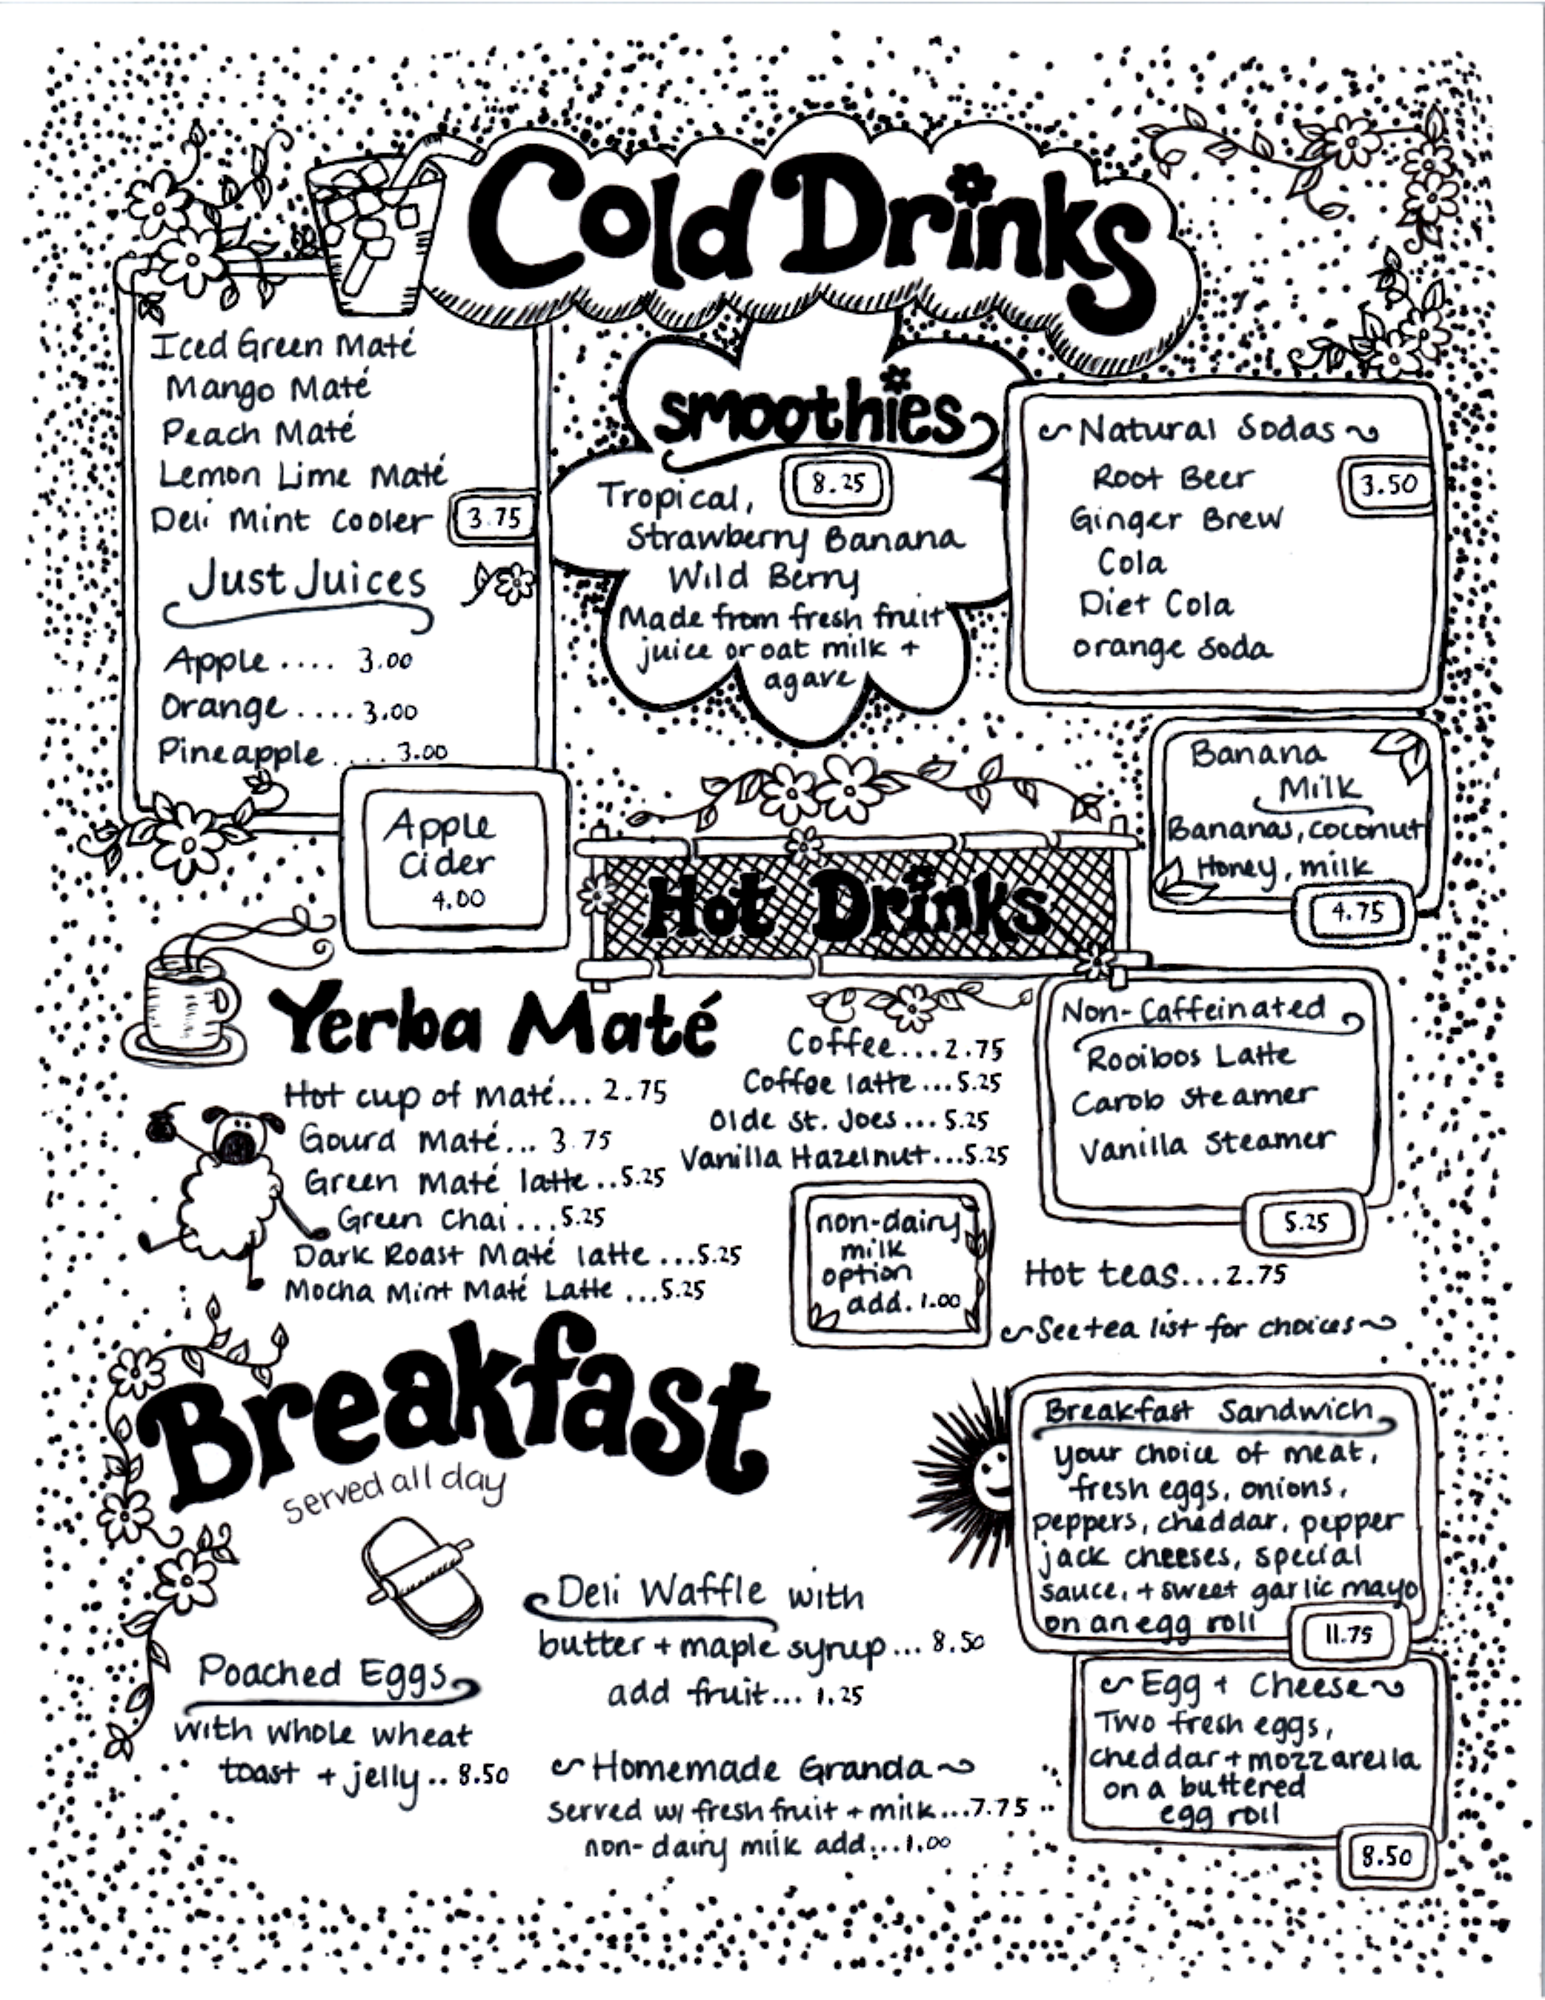 Cold Drinks
Iced Green Maté
Mango Maté
Peach Maté
Lemon Lime Maté
Deli Mint Cooler 3.75
Just Juices
Apple .... 3.00
Orange .... 3.00
Pineapple .... 3.00
Apple
Cider
4.00
smoothies
8.25
Tropical,
Strawberry Banana
Wild Berry
Made from fresh fruit
juice or oat milk +
agave
Natural Sodas
Root Beer 3.50
Ginger Brew
Cola
Diet Cola
orange Soda
Banana
Milk
Bananas, coconut
Honey, milk
4.75
Hot Drinks
Yerba Maté
Hot cup of maté... 2.75
Gourd Maté... 3.75
Green Maté latte..5.25
Green Chai...5.25
Dark Roast Maté latte ...5.25
Mocha Mint Maté Latte ...5.25
Coffee...2.75
Coffee latte...5.25
Olde St. Joes... 5.25
Vanilla Hazelnut...5.25
non-dairy
milk
option
add. 1.00
Non-Caffeinated
Rooibos Latte
Carob Steamer
Vanilla Steamer
5.25
Hot teas...2.75
See tea list for choices
Breakfast
served all day
Poached Eggs
with whole wheat
toast + jelly.. 8.50
Deli Waffle with
butter + maple syrup... 8.50
add fruit... 1.25
Homemade Granda
served w/ fresh fruit + milk...7.75
non-dairy milk add...1.00
Breakfast Sandwich
your choice of meat,
fresh eggs, onions,
peppers, cheddar, pepper
jack cheeses, special
sauce, + sweet garlic mayo
on an egg roll
11.75
Egg + Cheese
Two fresh eggs,
cheddar + mozzarella
on a buttered
egg roll
8.50